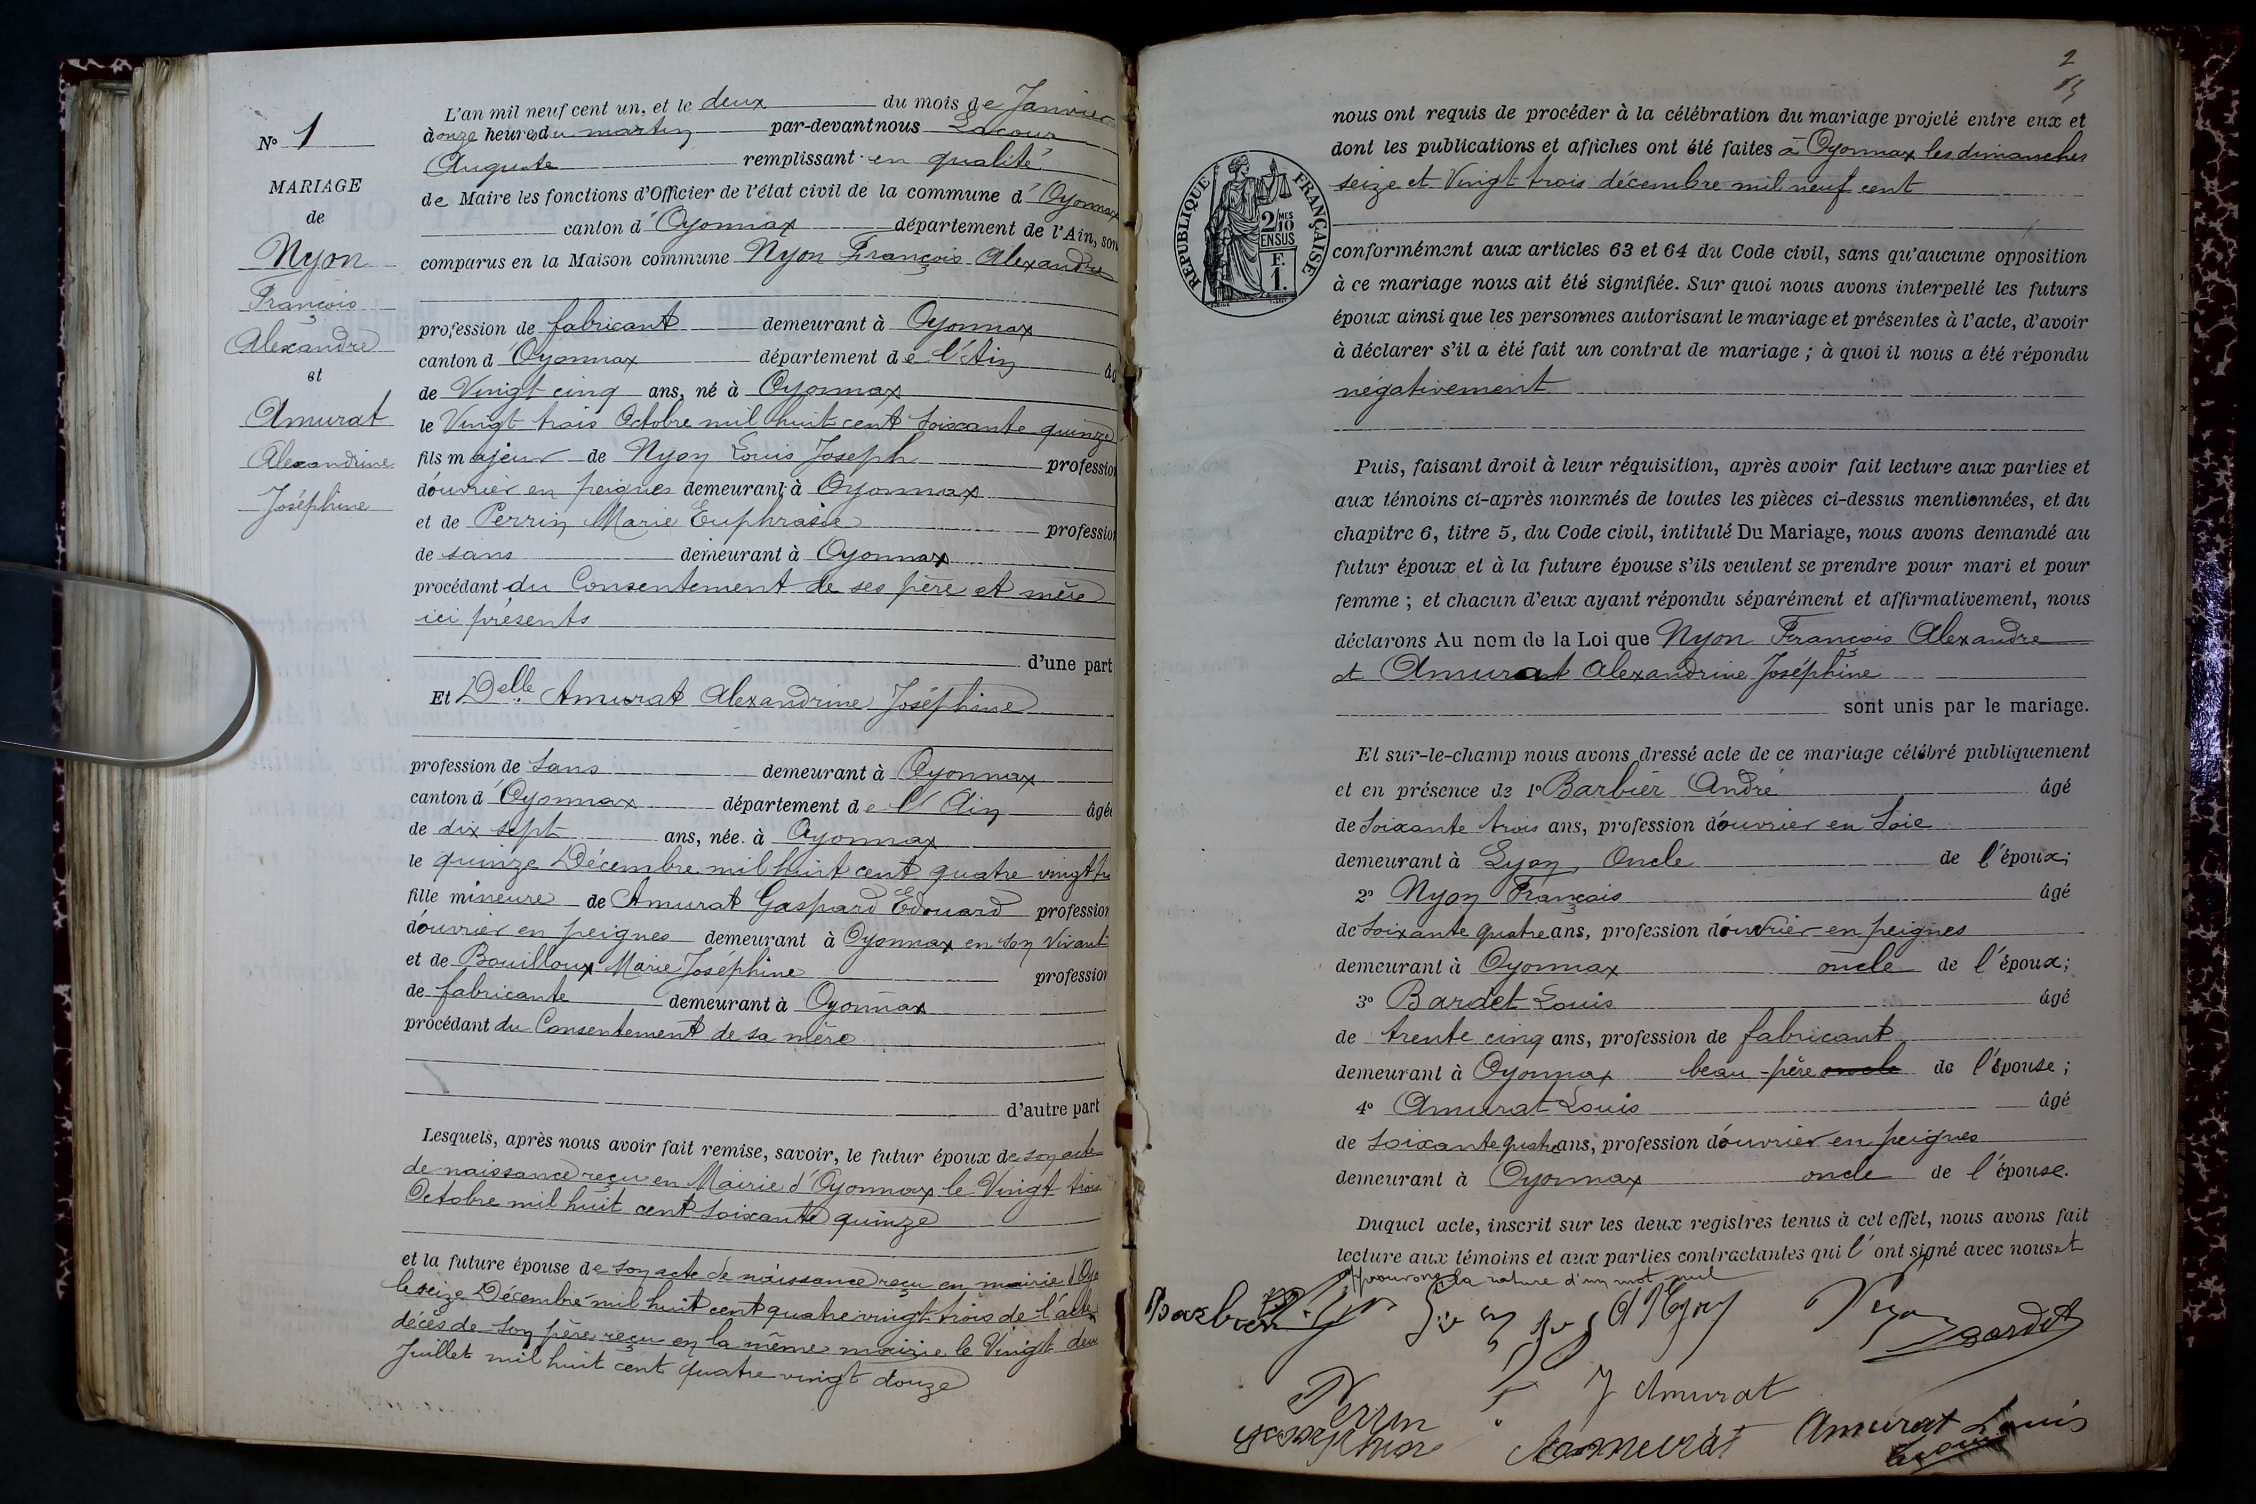 L'an mil neuf cent un, et le deux du mois de Janvier
à onze heures du matin par-devant nous Lacour
Auguste remplissant en qualité
de Maire les fonctions d'Officier de l'état civil de la commune d'Oyonnax
canton d'Oyonnax département de l'Ain, son
comparus en la Maison commune Nyon François Alexandre
profession de fabricant demeurant à Oyonnax
canton d'Oyonnax département de l'Ain âg
de Vingt cinq ans, né à Oyonnax
le Vingt trois Octobre mil huit cent soixante quinze
fils majeur de Nyon Louis Joseph profession
d'ouvrier en peignes demeurant à Oyonnax
et de Perrin Marie Euphrasie profession
de sans demeurant à Oyonnax
procédant du Consentement de ses père et mère
ici présents
d'une part
Et Delle Amurat Alexandrine Joséphine
profession de sans demeurant à Oyonnax
canton d'Oyonnax département de l'Ain âgée
de dix sept ans, née à Oyonnax
le quinze Décembre mil huit cent quatre vingt tr
fille mineure de Amurat Gaspard Edouard profession
d'ouvrier en peignes demeurant à Oyonnax en son Vivant
et de Bouilloux Marie Joséphine profession
de fabricante demeurant à Oyonnax
procédant du Consentement de sa mère
d'autre part
Lesquels, après nous avoir fait remise, savoir, le futur époux de son acte
de naissance reçu en Mairie d'Oyonnax le Vingt trois
Octobre mil huit cent soixante quinze
et la future épouse de son acte de naissance reçu en mairie d'Oyo
le seize Décembre mil huit cent quatre vingt trois de l'acte
décès de son père reçu en la même mairie le Vingt deux
Juillet mil huit cent quatre vingt douze
No 1
MARIAGE
de
Nyon
François
Alexandre
et
Amurat
Alexandrine
Joséphine
2
nous ont requis de procéder à la célébration du mariage projeté entre eux et
dont les publications et affiches ont été faites à Oyonnax les dimanches
seize et Vingt trois décembre mil neuf cent
REPUBLIQUE FRANÇAISE
2/10 MES
EN SUS
F.
1.
conformément aux articles 63 et 64 du Code civil, sans qu'aucune opposition
à ce mariage nous ait été signifiée. Sur quoi nous avons interpellé les futurs
époux ainsi que les personnes autorisant le mariage et présentes à l'acte, d'avoir
à déclarer s'il a été fait un contrat de mariage ; à quoi il nous a été répondu
négativement
Puis, faisant droit à leur réquisition, après avoir fait lecture aux parties et
aux témoins ci-après nommés de toutes les pièces ci-dessus mentionnées, et du
chapitre 6, titre 5, du Code civil, intitulé Du Mariage, nous avons demandé au
futur époux et à la future épouse s'ils veulent se prendre pour mari et pour
femme ; et chacun d'eux ayant répondu séparément et affirmativement, nous
déclarons Au nom de la Loi que Nyon François Alexandre
et Amurat Alexandrine Joséphine
sont unis par le mariage.
Et sur-le-champ nous avons dressé acte de ce mariage célébré publiquement
et en présence de 1° Barbier André âgé
de soixante trois ans, profession d'ouvrier en soie
demeurant à Lyon Oncle de l'époux;
2° Nyon François âgé
de soixante quatre ans, profession d'ouvrier en peignes
demeurant à Oyonnax oncle de l'époux;
3° Bardet Louis âgé
de trente cinq ans, profession de fabricant
demeurant à Oyonnax beau-père oncle de l'épouse;
4° Amurat Louis âgé
de soixante quatre ans, profession d'ouvrier en peignes
demeurant à Oyonnax oncle de l'épouse.
Duquel acte, inscrit sur les deux registres tenus à cet effet, nous avons fait
lecture aux témoins et aux parties contractantes qui l'ont signé avec nous et
approuvons la rature d'un mot nul
Barbier
A Nyon
Bardet
Perrin
J Amurat
Amurat Louis